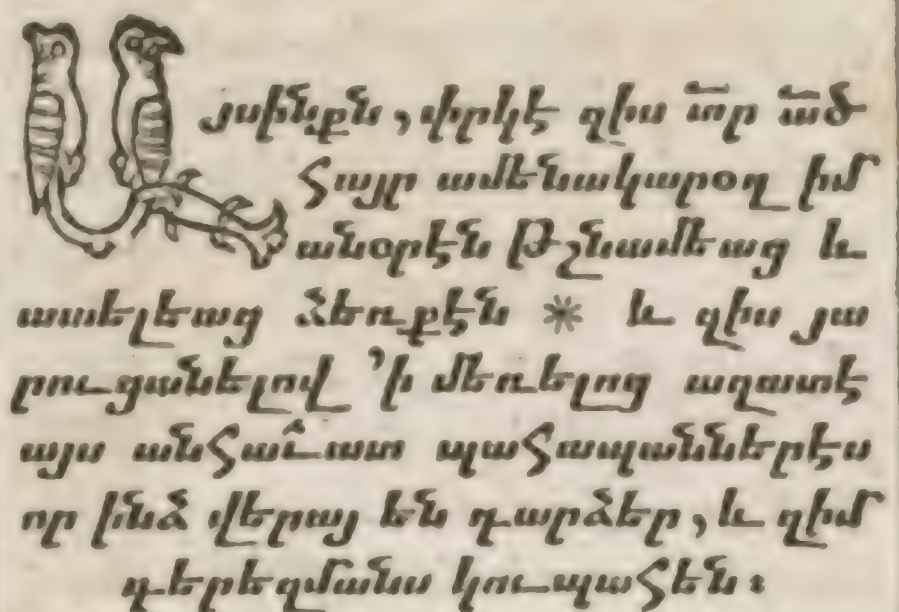 Այսինքն, փրկէ զիս տ՟ր ա՟ծ
Հայր ամենակարօղ իմ
անօրէն Թշնամեաց և
ատելեաց ձեռքէն * և զիս յա
րուցանելով ՚ի մեռելոց ազատէ
այս անհաւատ պահապաններէս
որ ինձ վերայ են դարձեր, և զիմ
գերեզմանս կու պահեն։